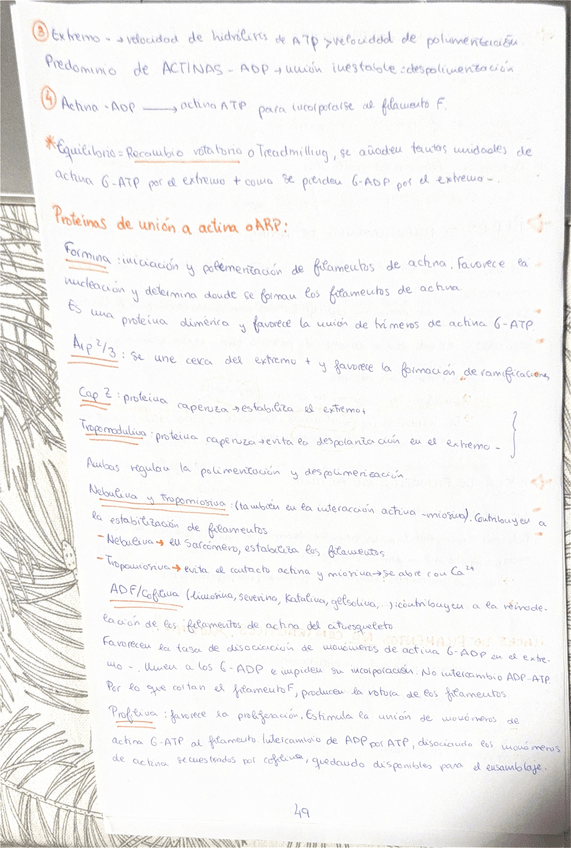 ③ Extremo - → velocidad de hidrólisis de ATP > velocidad de polimerización.
Predominio de ACTINAS - ADP → unión inestable: despolimerización
④ Actina - ADP → actina ATP para incorporarse al filamento F.
*Equilibrio = Recambio rotatorio o Treadmilling, se añaden tantas unidades de
actina G-ATP por el extremo + como se pierden G-ADP por el extremo -.
Proteínas de unión a actina o ARP:
Formina: iniciación y polimerización de filamentos de actina. Favorece la
nucleación y determina donde se forman los filamentos de actina.
Es una proteína dimérica y favorece la unión de trímeros de actina G-ATP
Arp 2/3: se une cerca del extremo + y favorece la formación de ramificaciones
Cap Z: proteína caperuza → estabiliza el extremo +
Tropomodulina: proteína caperuza → evita la en el extremo -
Ambos regulan la polimerización y despolimerización
Nebulina y Tropomiosina: (también en la interacción actina-miosina). Contribuyen a
la estabilización de filamentos
- Nebulina → en sarcómero, estabiliza los filamentos
- Tropomiosina → evita el contacto actina y miosina → se abre con Ca2+
ADF/Cofilina (severina, Katalina, gelsolina, ): contribuyen a la remode-
lación de los filamentos de actina del citoesqueleto
Favorecen la tasa de disociación de monómeros de actina G-ADP en el extre-
mo -. Unen a los G-ADP e impiden su incorporación. No intercambio ADP-ATP
Por lo que cortan el filamento F, producen la rotura de los filamentos
Profilina: favorece la Estimula la unión de monómeros de
actina G-ATP al filamento Intercambio de ADP por ATP, disociando los monómeros
de actina secuestrados por cofilina, quedando disponibles para el ensamblaje.
49